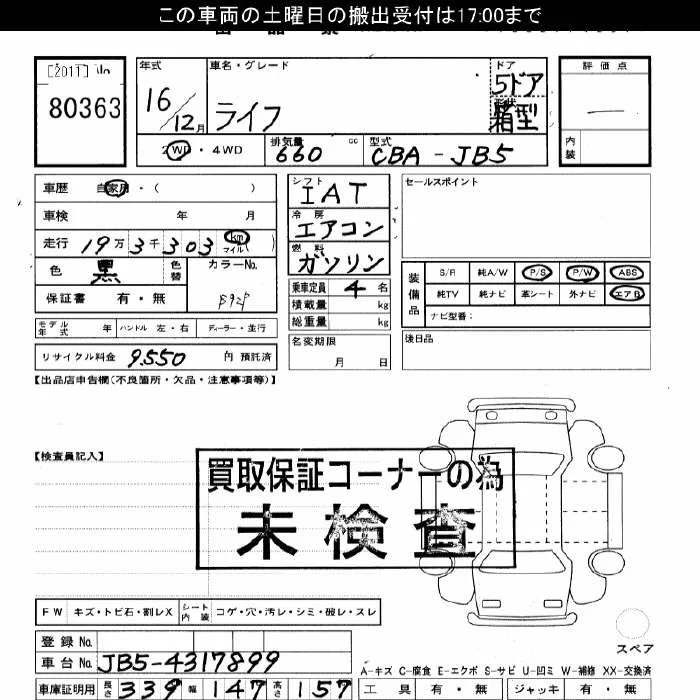 この車両の土曜日の搬出受付は17:00まで
[2011] No
80363
年式
16/12月
車名・グレード
ライフ
ドア
5ドア
形状
箱型
評価点
—
内装
2WD・4WD
排気量
660
cc
型式
CBA-JB5
車歴 自家用・( )
車検 年 月
走行 19万3千303 km マイル
色 黒 色替
カラーNo.
B92P
保証書 有・無
モデル年式 年 ハンドル 左・右 ディーラー・並行
リサイクル料金 9.550 円 預託済
シフト
IAT
冷房
エアコン
燃料
ガソリン
乗車定員 4 名
積載量 kg
総重量 kg
名変期限
月 日
セールスポイント
装備品
S/R 純A/W P/S P/W ABS
純TV 純ナビ 革シート 外ナビ エアB
ナビ型番：
後日品
【出品店申告欄(不良箇所・欠品・注意事項等)】
【検査員記入】
買取保証コーナーの為
未検査
FW キズ・トビ石・割レX
シート内装 コゲ・穴・汚レ・シミ・破レ・スレ
登録No.
車台No. JB5-4317899
車庫証明用 長さ 339 幅 147 高さ 157
スペア
A-キズ C-腐食 E-エクボ S-サビ U-凹ミ W-補修 XX-交換済
工具 有・無 ジャッキ 有・無